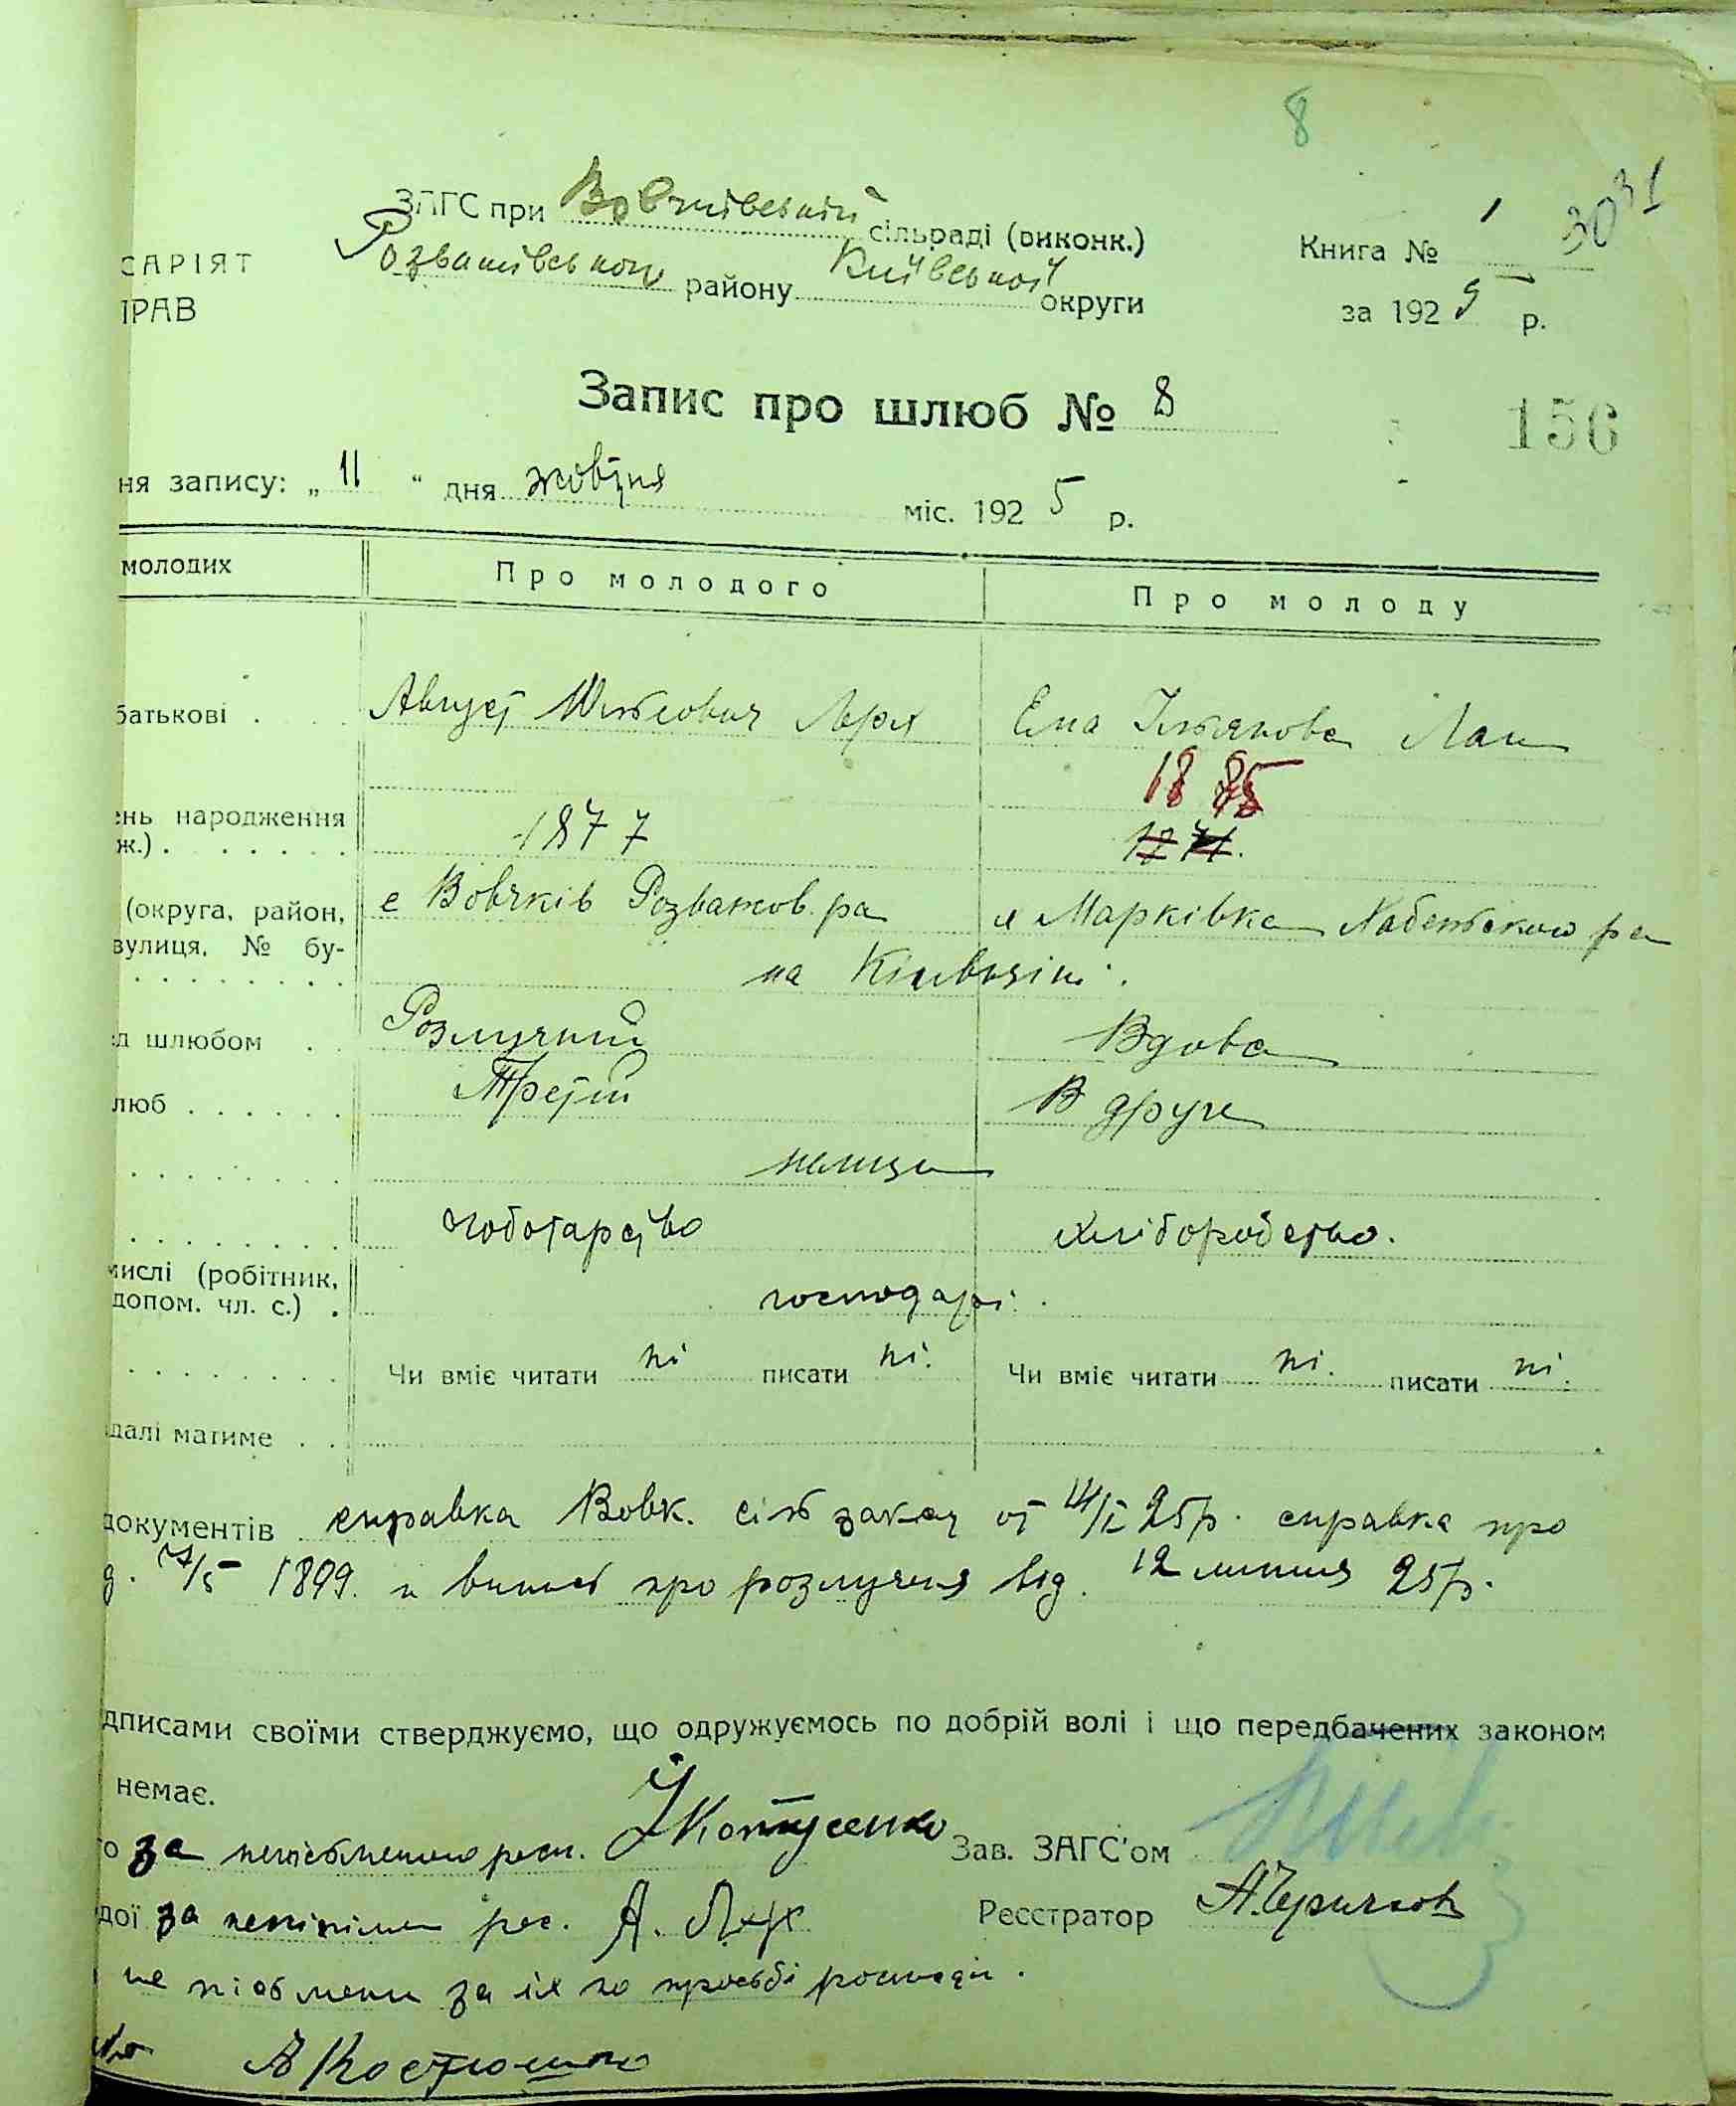 8
ЗАГС при Вовчківській сільраді (виконк.)
Книга № 1
30 31
САРІЯТ
Розважівського району Київської округи
ПРАВ
за 1925 р.
Запис про шлюб № 8
156
ня запису: „ 11 “ дня жовтня міс. 1925 р.
молодих
Про молодого
Про молоду
батькові . Август Лерх
Ема Лан
1885
ень народження
ж.) . . . . . . 1877
(округа, район, с Вовчків Розважов. ра
Марківка Хабенського ра
вулиця, № бу-
на Київщині.
д шлюбом . Розлучений
Вдова
люб . . . . . . Третій
В друге
німці
чоботарство
хліборобство.
мислі (робітник,
допом. чл. с.) . господарі.
Чи вміє читати ні писати ні.
Чи вміє читати ні. писати ні.
далі матиме . .
документів справка Вовк. сіль от 25р. справка про
1899. и випись про розлучення від. 12 липня 25р.
дписами своїми стверджуємо, що одружуємось по добрій волі і що передбачених законом
немає.
о за неписьменого росп.
Зав. ЗАГС'ом
дої за рос. А. Лерх
Реєстратор
не письмени за їх по просьбі
А Костюшко